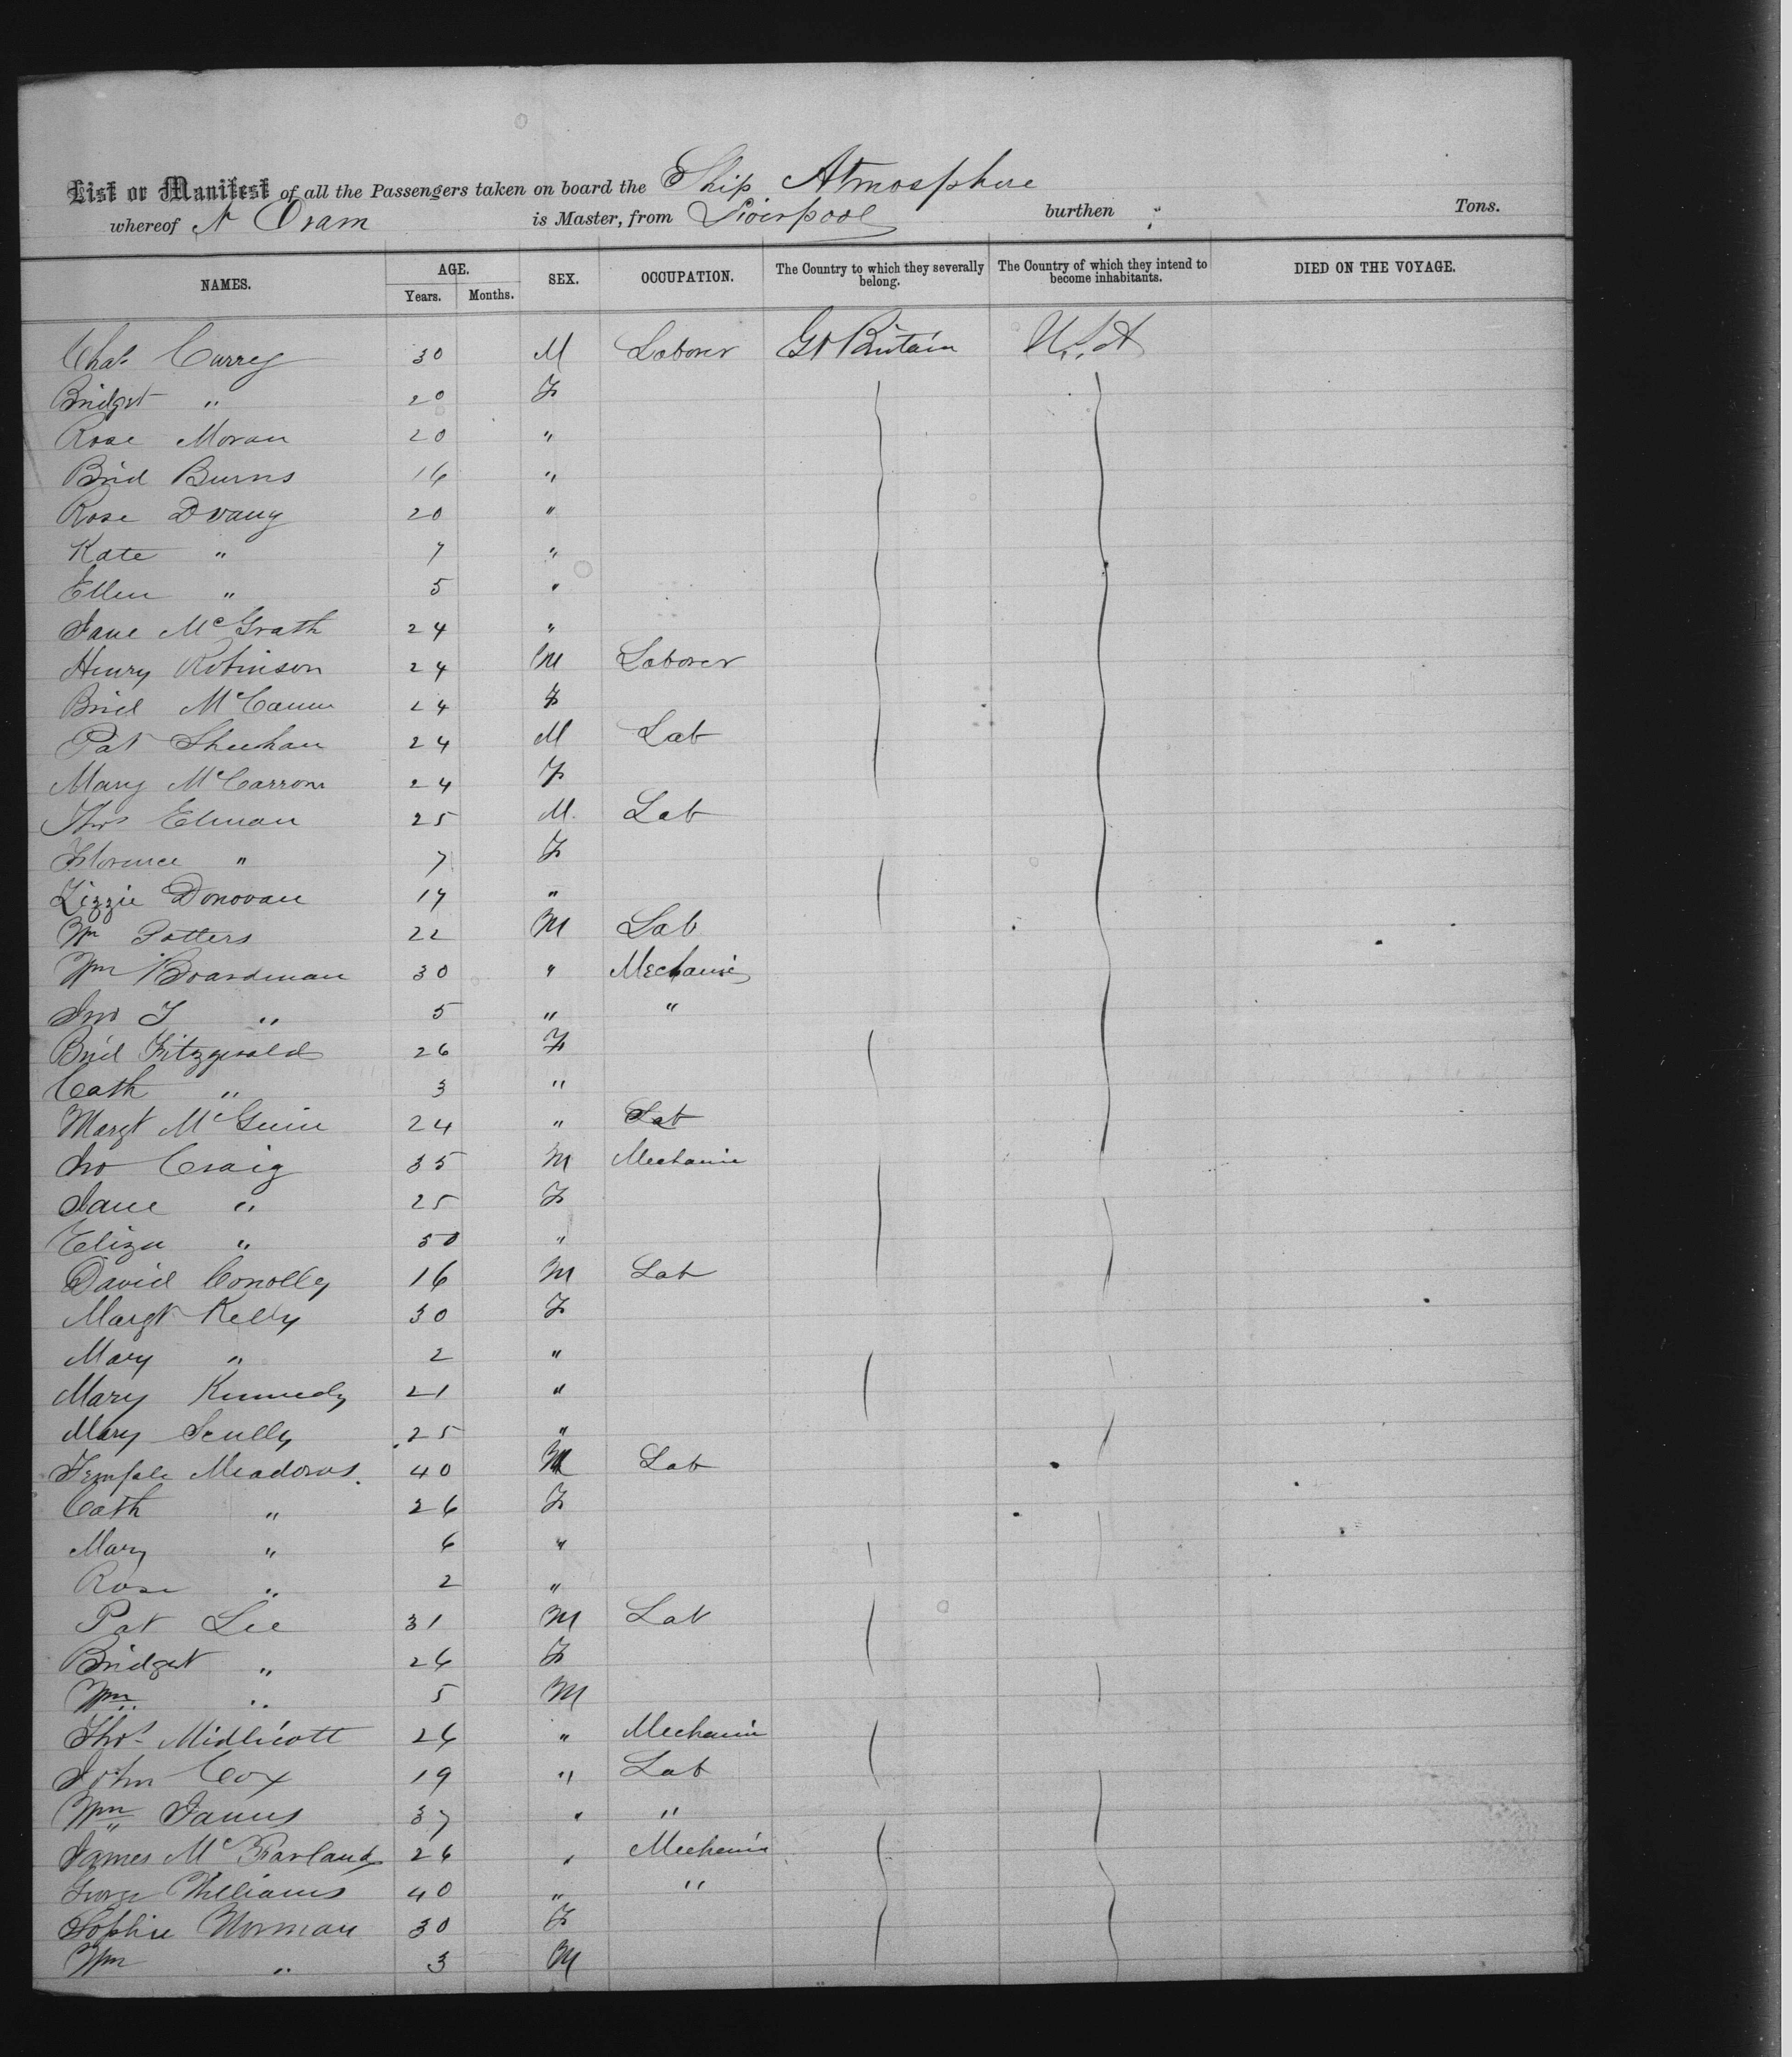 List or Manifest of all the Passengers taken on board the Ship Atmosphere
whereof N Oram is Master, from Liverpool burthen Tons.
NAMES. AGE. Years. Months. SEX. OCCUPATION. The Country to which they severally belong. The Country of which they intend to become inhabitants. DIED ON THE VOYAGE.
Chas Currey 30 M Laborer Gt Britain U.S.A
Bridget " 20 F
Rose Moran 20 "
Brid Burns 16 "
Rose Dvany 20 "
Kate " 7 "
Ellen " 5 "
Jane McGrath 24 "
Henry Robinson 24 M Laborer
Brid McCann 24 F
Pat Sheehan 24 M Lab
Mary McCarron 24 F
Thos Elman 25 M. Lab
Florence " 7 F
Lizzie Donovan 17 "
Wm Potters 22 M Lab
Wm Boardman 30 " Mechanic
Jno T " 5 " "
Brid Fitzgerald 26 F
Cath " 3 "
Margt McGuin 24 " Lab
Jno Craig 35 M Mechanic
Jane " 25 F
Eliza " 50 "
David Conolly 16 M Lab
Margt Kelly 30 F
Mary " 2 "
Mary Kennedy 21 "
Mary Scully 25 "
Temple Meadows. 40 M Lab
Cath " 26 F
Mary " 6 "
Rose " 2 "
Pat Lee 31 M Lab
Bridget " 26 F
Wm " 5 M
Thos Midlicott 26 " Mechanic
John Cox 19 " Lab
Wm James 37 " "
James McFarland 26 " Mechanic
George Williams 40 " "
Sophie Norman 30 F
Wm " 3 M